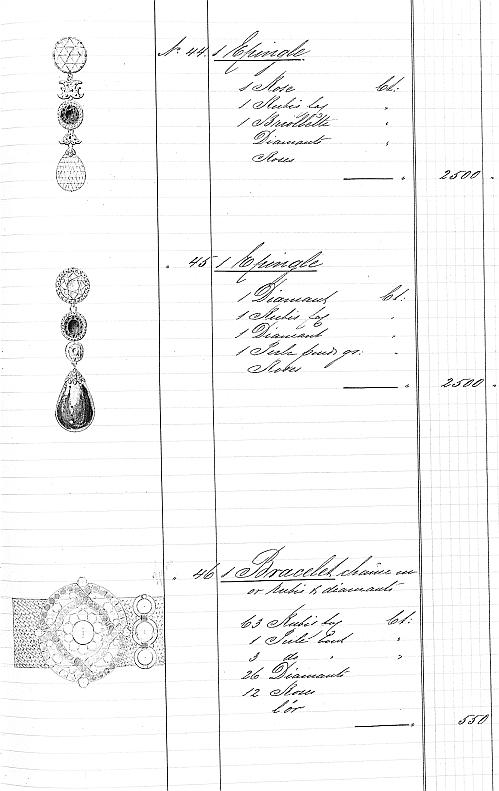 N. 44. 1 Epingle.
1 Rose Ct:
1 Rubis
1 Briollette "
Diamants "
Roses
" 2500 "
" 45 1 Epingle
1 Diamant Ct:
1 Rubis "
1 Diamant "
1 Perle pend. gr. "
Roses
" 2500 "
" 46 1 Bracelet chaîne en
or Rubis & diamants
63 Rubis Ct:
1 Perle "
3 do " "
26 Diamants
12 Roses
l'or
" 550